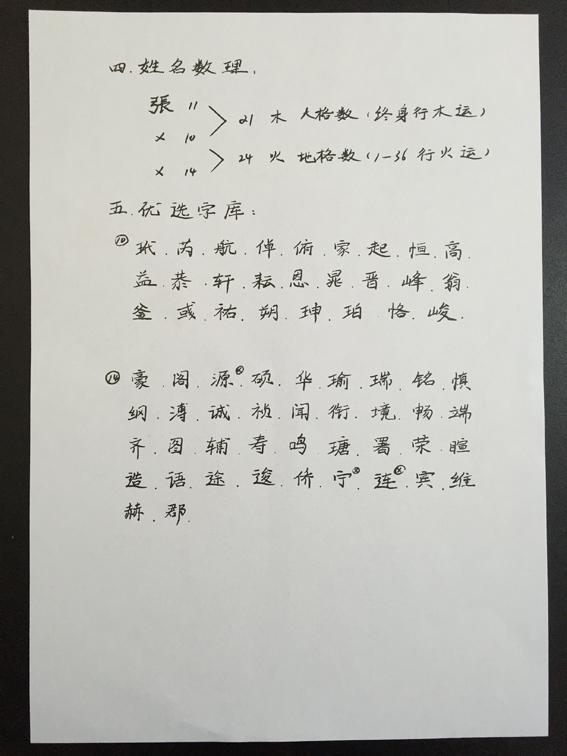 四.姓名数理.
張 11
21 木 人格数(终身行木运)
× 10
24 火 地格数(1-36行火运)
× 14
五.优选字库:
⑩ 玳.芮.航.倬.俯.家.起.恒.高.
益.恭.轩.耘.恩.晁.晋.峰.翁.
釜.彧.祐.朔.珅.珀.恪.峻.
⑭ 豪.阁.源.硕.华.瑜.瑞.铭.慎
纲.溥.诚.祯.闻.衔.境.畅.端
齐.图.辅.寿.鸣.瑭.署.荣.暄
造.语.途.逡.侨.宁.连.宾.维
赫.郡.